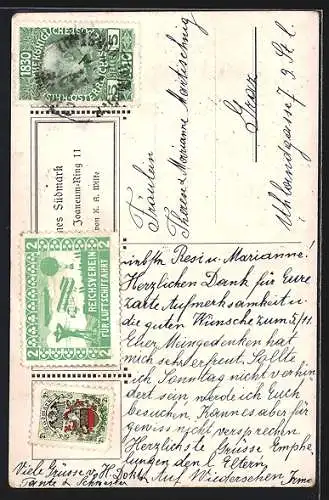 1830 1910
KAISERLICHE KÖNIGLICHE ÖSTERREICHISCHE
5 5
nes Südmark
Joaneum-Ring 11
von K. A. Wilke
Fräulein
Therese u Marianne
Graz
Uhlandgasse 7 3. St. l.
2 2
REICHSVEREIN
FÜR LUFTSCHIFFAHRT
Resi u. Marianne!
Herzlichen Dank für Eure
zarte Aufmerksamkeit u
die guten Wünsche zum 5/11.
Euer Meingedenken hat
mich sehr erfreut. Sollte
ich Sonntag nicht verhin
dert sein, werde ich Euch
besuchen. Kann es aber für
gewiss nicht versprechen
Herzlichste Grüsse Empfeh
lungen den l. Eltern
Auf Wiedersehen Irma
Viele Grüsse v. H. Dokt
Tante u Schwester